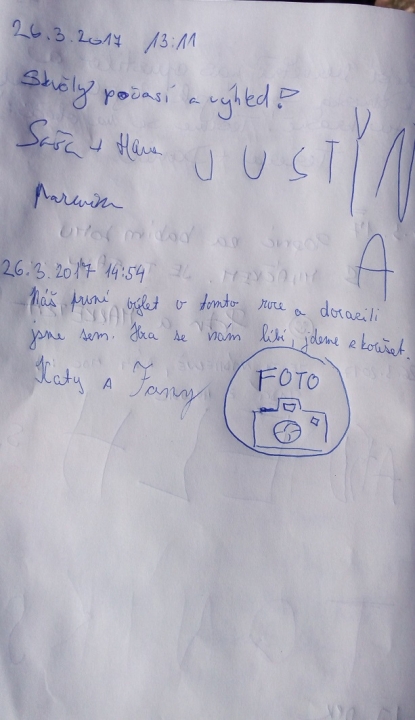 26.3.2017 13:11
Skvělý počasí a výhled!
Saša + Hana
JUSTÝNA
26.3.2017 14:54
Náš první výlet v tomto roce a dorazili
jsme sem. Moc se nám líbí, jdeme
Katy a Fany
FOTO